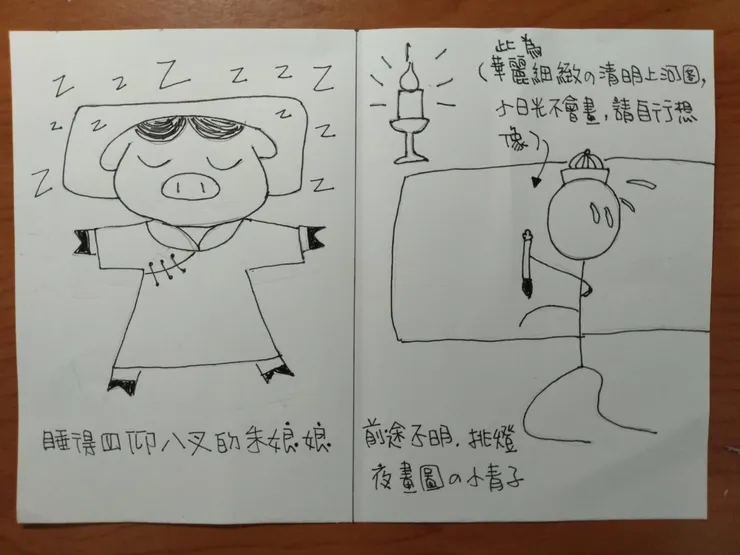 Z Z Z Z Z Z
Z Z Z Z
Z Z
睡得四仰八叉的朱娘娘
此為
(華麗細緻の清明上河圖,
小日光不會畫,請自行想
像)
前途不明,挑燈
夜畫圖の小青子